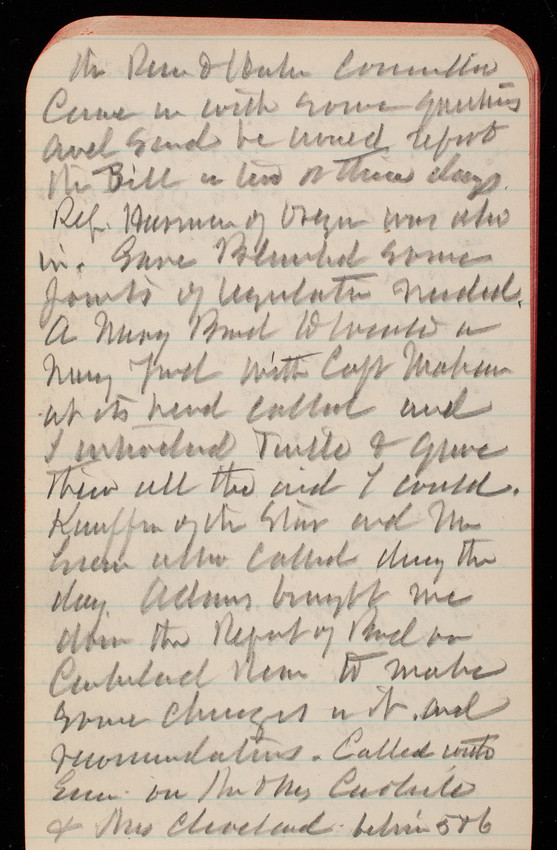 the River & Harbor Committee
Came in with some questions
and said he would report
the Bill in two or three days.
Rep. Herman of Oregon was also
in. Gave some
points of legislation needed.
A Navy Board to locate a
Navy Yard with Capt Mahan
at its head called and
I introduced Turtle & gave
them all the aid I could.
Kauffm of the Star and Mr
also called during the
day. Adams brought me
down the Report of Board on
Cumberland River to make
some changes in it. and
recomendations. Called with
Em. on Mr & Mrs Carlisle
& Mrs Cleveland between 5 & 6